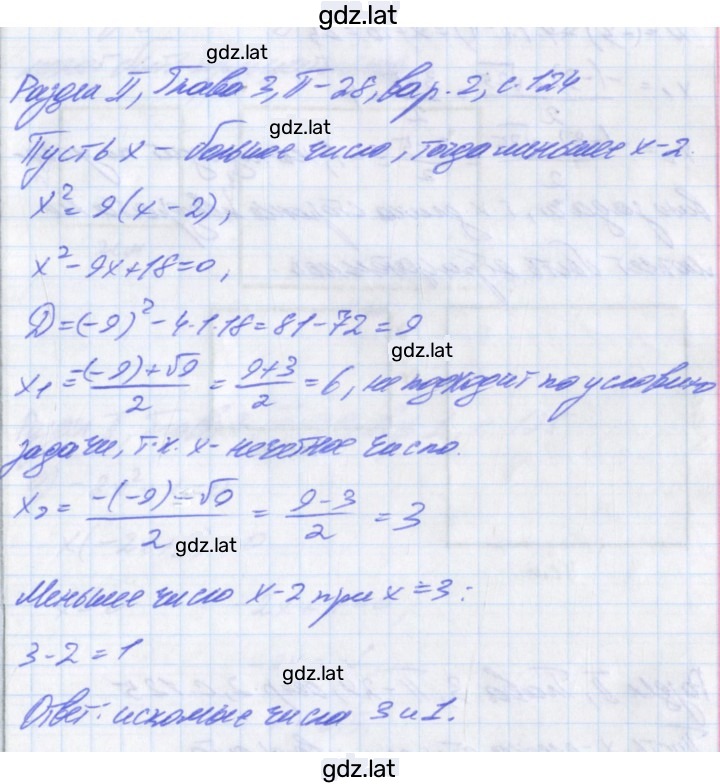 gdz.lat
gdz.lat
Раздел II, Глава 3, П-28, вар. 2, с. 124
gdz.lat
Пусть х – большее число, тогда меньшее х-2.
x² = 9(x-2),
x² - 9x + 18 = 0,
D = (-9)² - 4·1·18 = 81 - 72 = 9
gdz.lat
x₁ = -(-9)+√9 / 2 = 9+3 / 2 = 6, не подходит по условию
задачи, т.к. х – нечетное число.
x₂ = -(-9)-√9 / 2 = 9-3 / 2 = 3
gdz.lat
Меньшее число х-2 при х = 3:
3-2 = 1
gdz.lat
Ответ: искомые числа 3 и 1.
gdz.lat